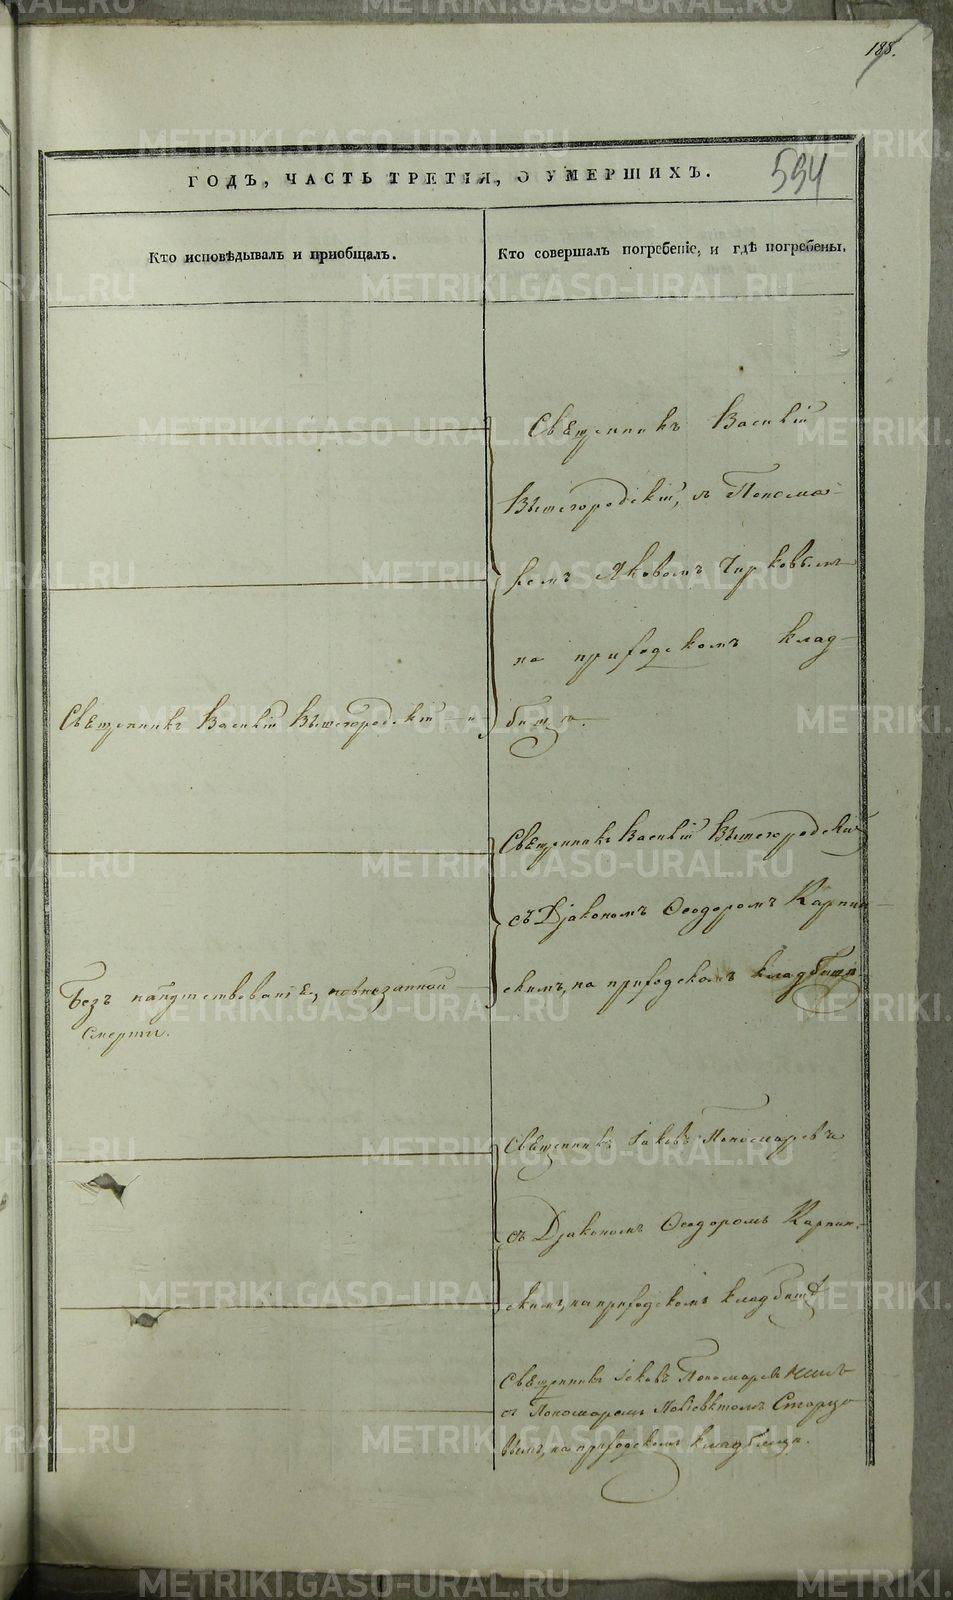 188.
ГОДЪ, ЧАСТЬ ТРЕТІЯ, О УМЕРШИХЪ.
594
Кто исповѣдывалъ и пріобщалъ.
Кто совершалъ погребеніе, и гдѣ погребены.
Священникъ Василій
Вышегородскій, съ Понома-
ремъ Яковомъ Чирковымъ
на приходскомъ клад-
бищѣ.
Священникъ Василій Вышегородскій
Священникъ Василій Вышегородскій
съ Діакономъ Ѳеодоромъ Карпин-
скимъ, на приходскомъ кладбищѣ
Безъ напутствованія, по внезапной
смерти.
Священникъ Іаковъ Пономаревъ
съ Діакономъ Ѳеодоромъ Карпин-
скимъ, на приходскомъ кладбищѣ
Священникъ Іаковъ Пономаревъ
съ Пономаремъ Старцо-
вымъ, на приходскомъ кладбищѣ.
METRIKI.GASO-URAL.RU